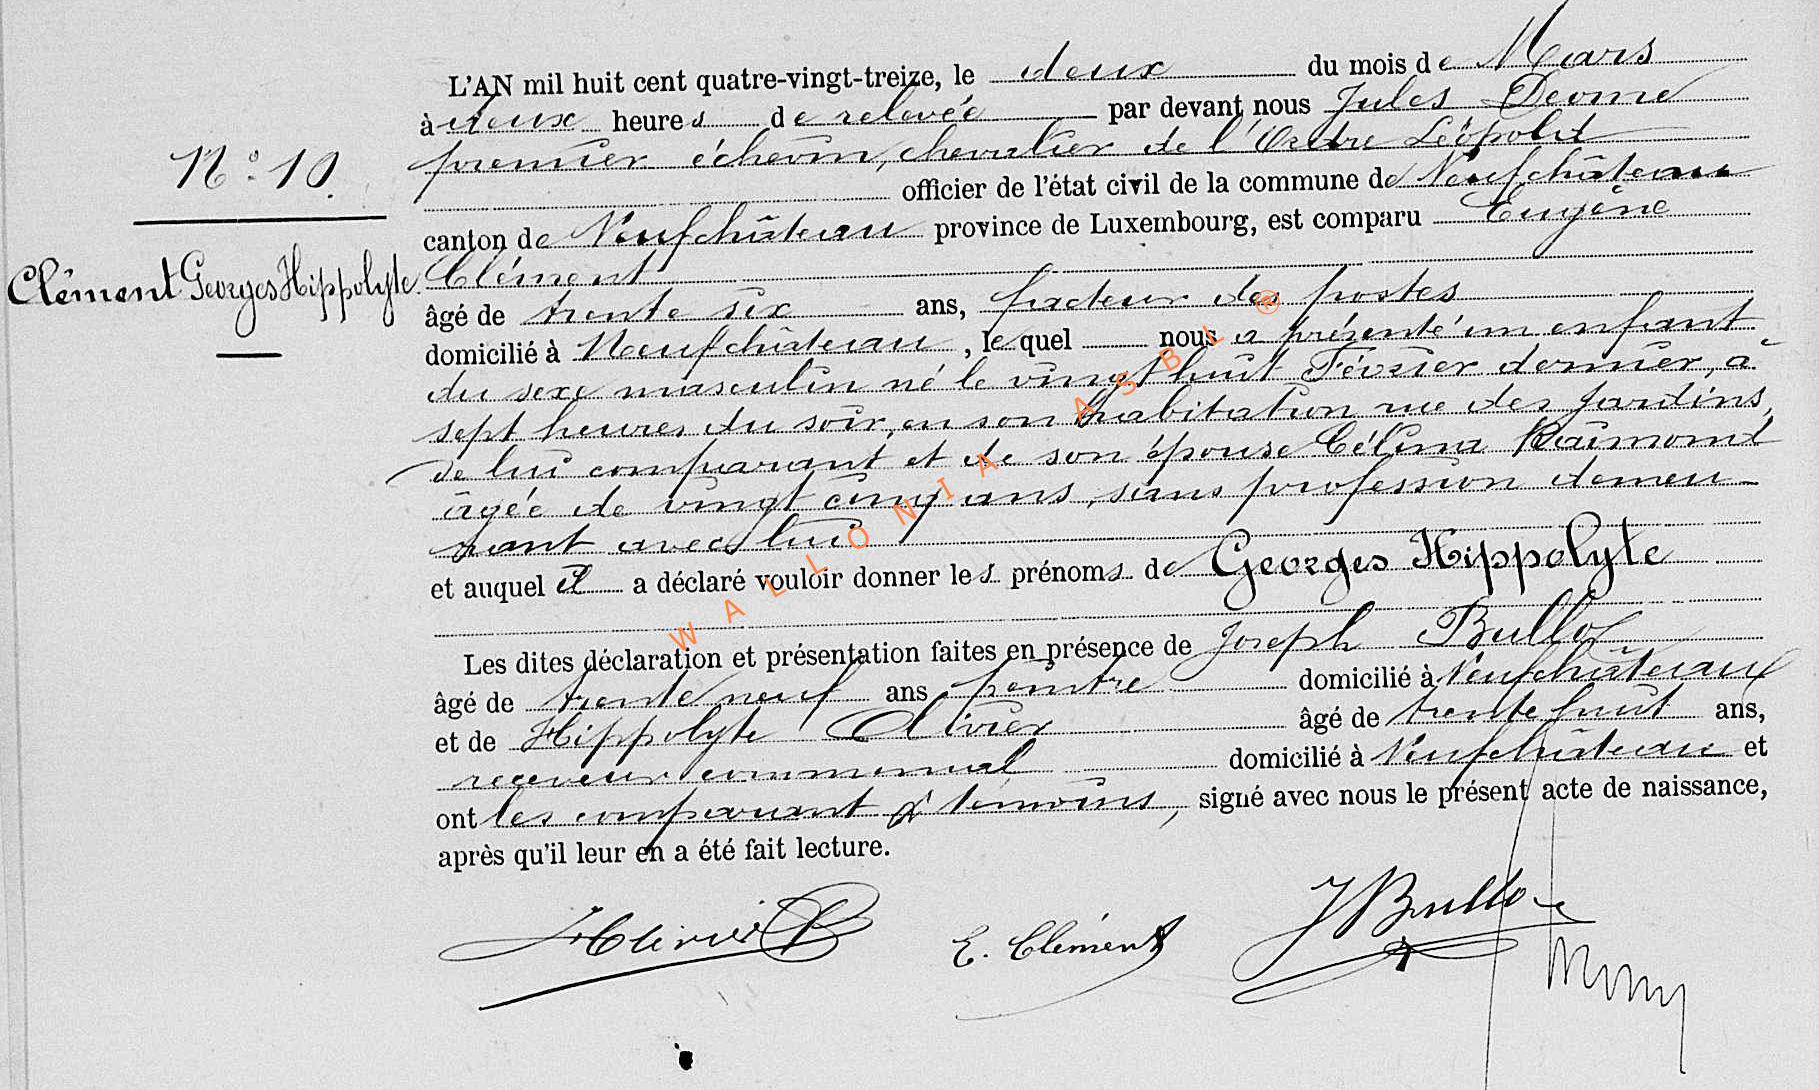 L'AN mil huit cent quatre-vingt-treize, le deux du mois de Mars
à deux heures de relevée par devant nous Jules Deome
premier échevin, chevalier de l'Ordre Léopold
officier de l'état civil de la commune de Neufchâteau
N° 10.
canton de Neufchâteau province de Luxembourg, est comparu Eugène
Clément
Clément Georges Hippolyte.
âgé de trente six ans, facteur des postes
domicilié à Neufchâteau, le quel nous a présenté un enfant
du sexe masculin né le vingt huit Février dernier, à
sept heures du soir, en son habitation rue des Jardins,
de lui comparant et de son épouse Célina Raimond
âgée de vingt cinq ans, sans profession demeu-
rant avec lui
et auquel il a déclaré vouloir donner les prénoms de Georges Hippolyte
Les dites déclaration et présentation faites en présence de Joseph Bullot
âgé de trente neuf ans peintre domicilié à Neufchâteau
et de Hippolyte Olivier âgé de trente huit ans,
receveur communal domicilié à Neufchâteau et
ont les comparant & témoins, signé avec nous le présent acte de naissance,
après qu'il leur en a été fait lecture.
HOlivier E. Clément JBullot
WALLONIA ASBL ®